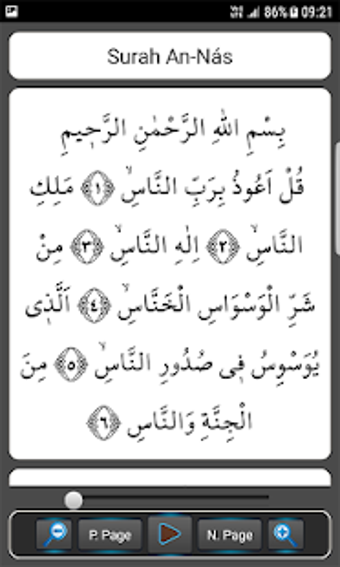 86% 09:21
Surah An-Nás
بِسْمِ اللهِ الرَّحْمٰنِ الرَّحٖيمِ
قُلْ اَعُوذُ بِرَبِّ النَّاسِۙ ﴿١﴾ مَلِكِ
النَّاسِۙ ﴿٢﴾ اِلٰهِ النَّاسِۙ ﴿٣﴾ مِنْ
شَرِّ الْوَسْوَاسِ الْخَنَّاسِۙ ﴿٤﴾ اَلَّذٖى
يُوَسْوِسُ فٖى صُدُورِ النَّاسِۙ ﴿٥﴾ مِنَ
الْجِنَّةِ وَالنَّاسِ ﴿٦﴾
P. Page N. Page